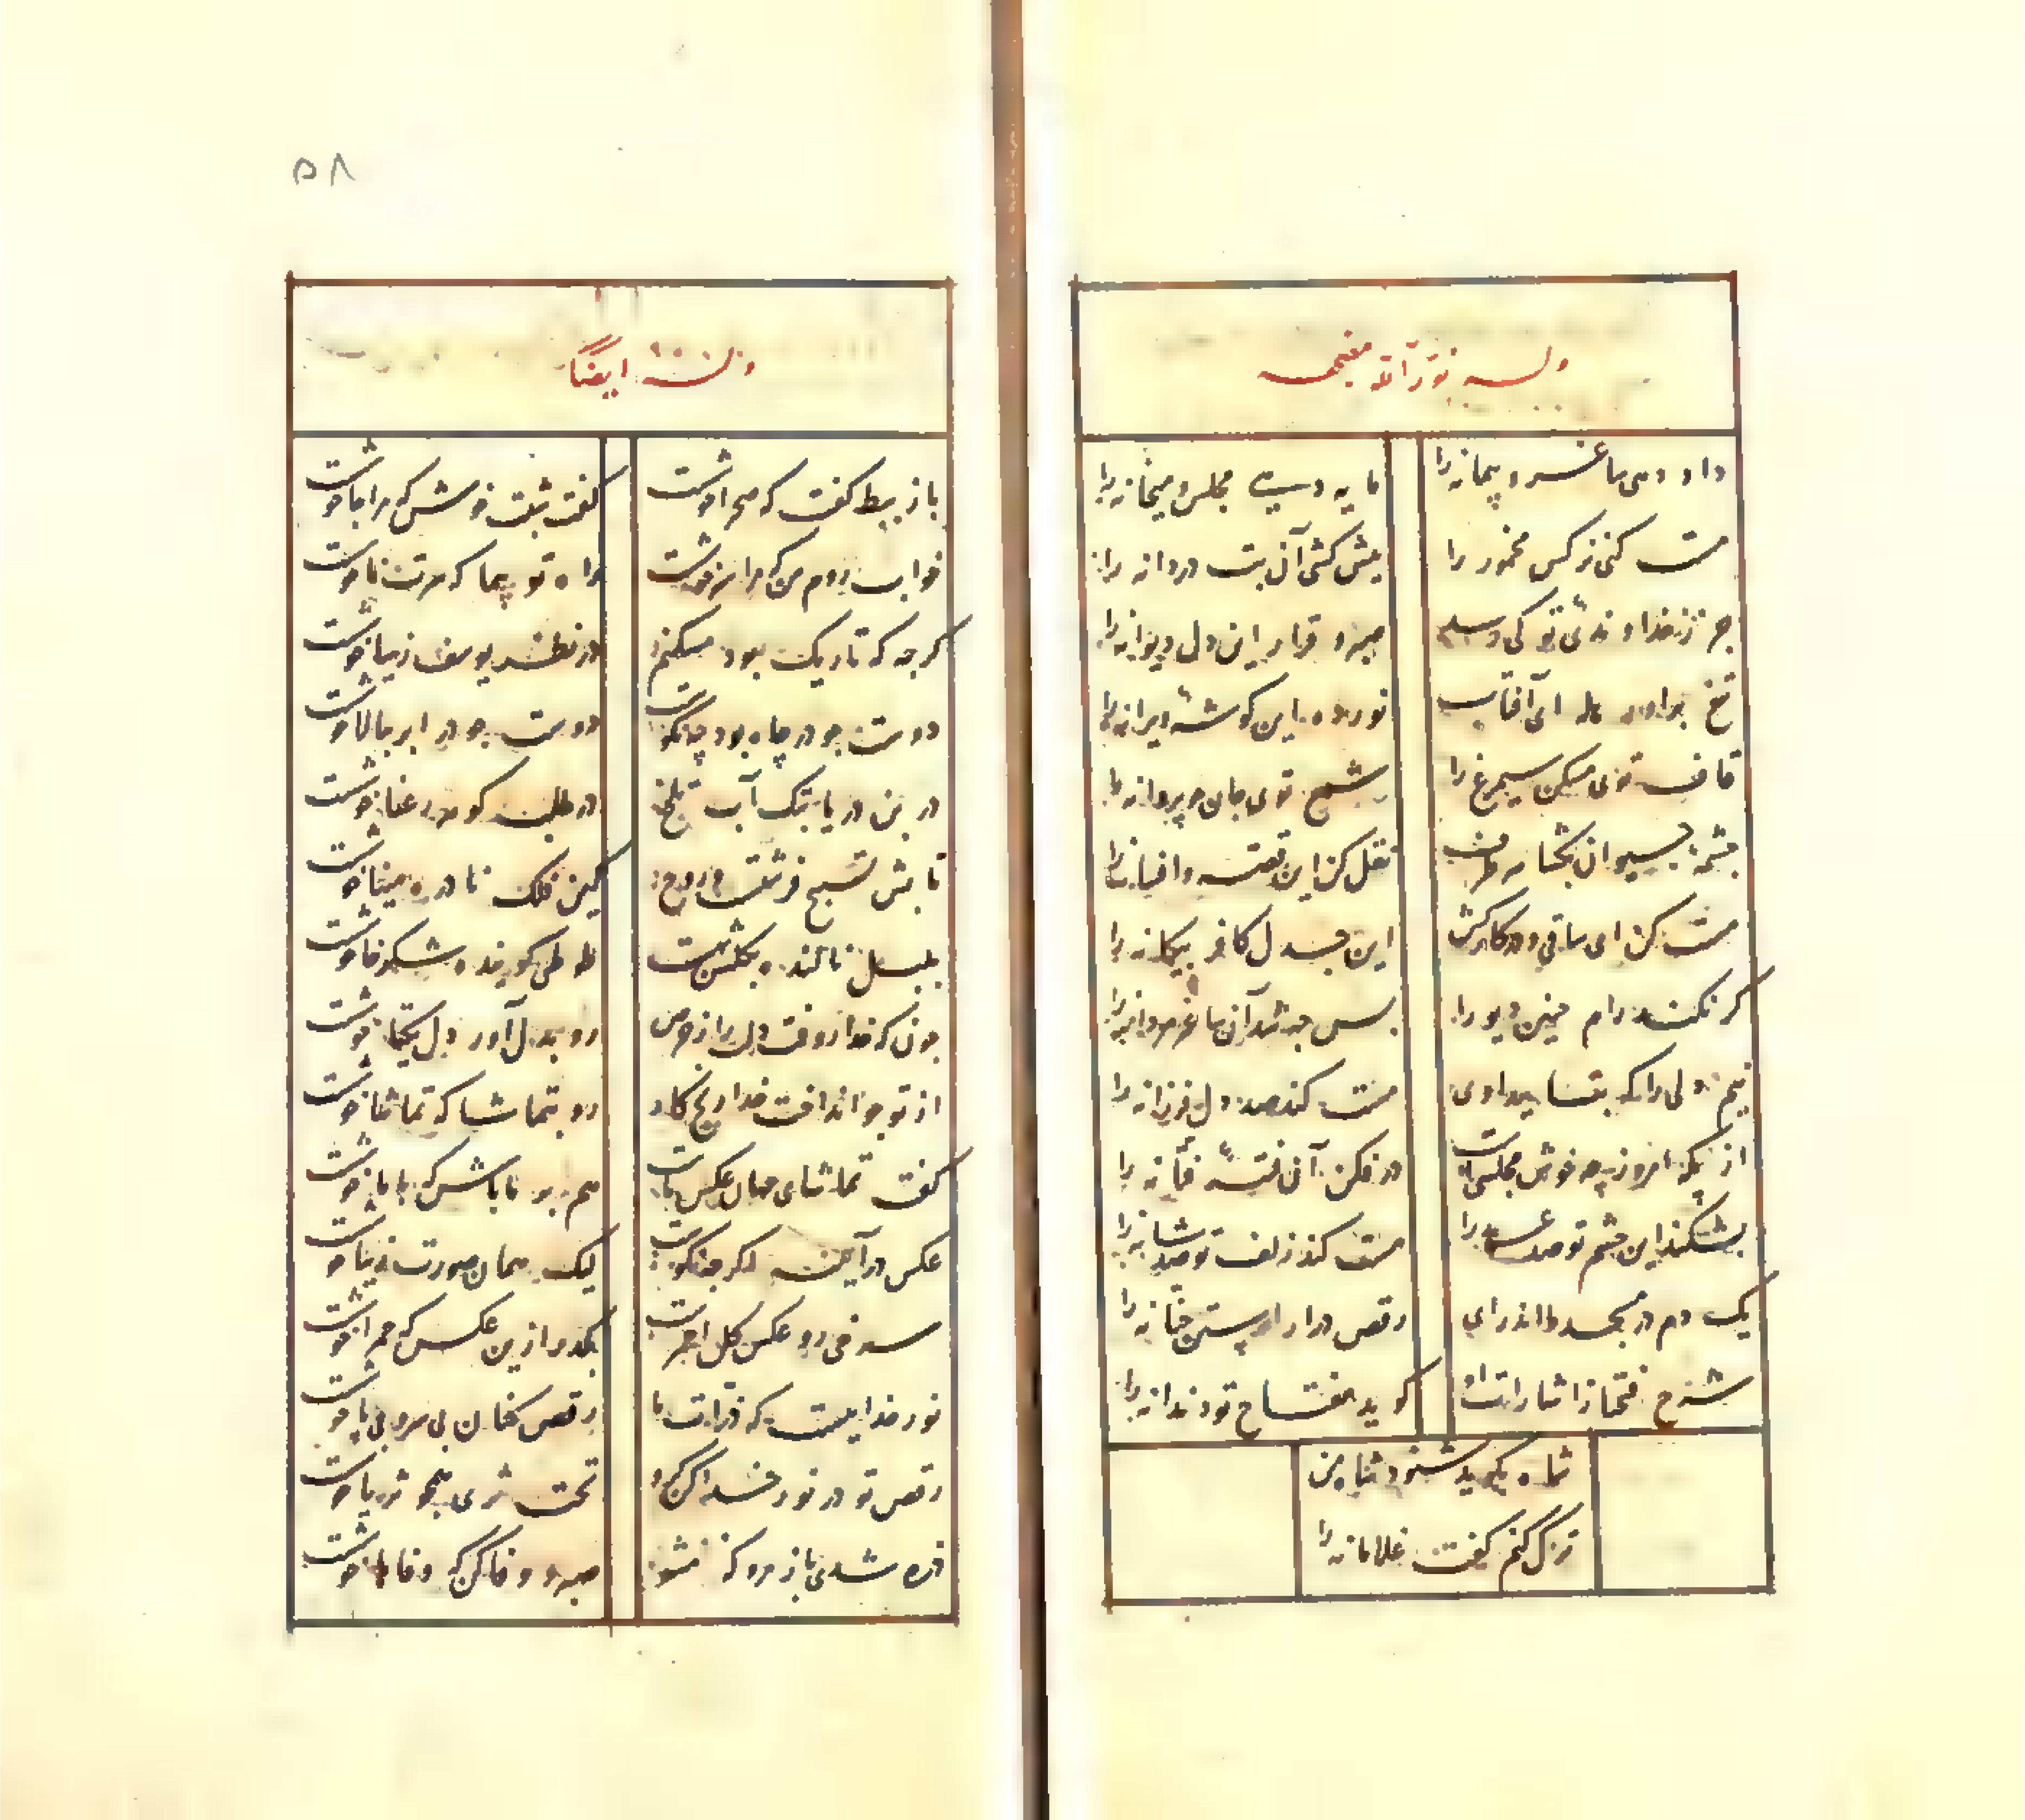 وله نور الله مضجعه
داد دهی ساغر و پیمانه را
مایه دهی مجلس و میخانه را
مست کنی نرکس مخمور را
پیش کشی آن بت دردانه را
جز ز خداوندئ تو کی رسد
صبر و قرار این دل دیوانه را
تیغ براور هله ای آفتاب
نور ده این کوشهٔ ویرانه را
قاف توی مسکن سیمرغ را
شمع توی جان چو پروانه را
چشمهٔ حیوان بکشا هر طرف
نقل کن این قصه و افسانه را
مست کن ای ساقی و در کار کش
این جسد کافر بیکانه را
کر نکند رام چنین دیو را
بس چه شد آن ساغر مردانه را
نیم دلی را که بتسا
مست کند صد دل فرزانه را
از پکه امروز چه خوش مجلسیست
در فکن آن فتنهٔ فتانه را
بشکند این چشم تو صد عهد را
مست کند زلف تو صد شانه را
یک دم در مسجد و اندر ای
رقص درار استن حنانه را
شرح فتحنا و اشارات او
کوید مفتاح تو دندانه را
شاه بکوید شنود شاه من
ترک کنم کفت غلامانه را
۵۸
وله ایضاً
باز ببط کفت که صحرا خوشست
کفت شبت خوش که مرا جا خوشست
خواب روم من که مرا سر خوشست
راه تو پیما که سرت ناخوشست
کرچه که تاریک بود مسکنم
در نظر یوسف زیبا خوشست
دوست چو در چاه بود چه نکوست
دوست چو در ابر ببالا خوشست
در بن دریا بتک آب تلخ
در طلب کوهر رعنا خوشست
تابش تسبیح فرشتست و روح
کین فلک نادره مینا خوشست
بلبل نالنده بکلشن بدشت
طوطی کوینده شکرخا خوشست
چون که خدا روفت دلت را ز حرص
رو بدل آور دل یکتا خوشست
از تو چو انداخت خدا رنج کار
رو بتماشا که تماشا خوشست
کفت تماشای جهان عکس ماست
هم بر ما باش که با ما خوشست
عکس در آینه اکرچه نکوست
لیک همان صورت زیبا خوشست
سرخی رو عکس کل احمرست
بکذر ازین عکس که حمرا خوشست
نور خداییست که ذرات را
رقص کنان بی سر و بی پا خوشست
رقص تو در نور خدا کن کزو
تحت ثری همچو ثریا خوشست
ذره شدی باز مرو که مشو
صبر و وفا کن که وفاها خوشست